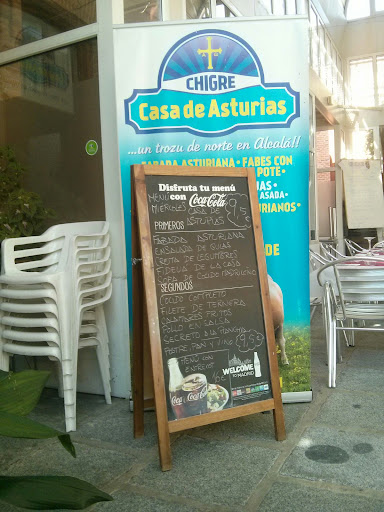 CHIGRE
Casa de Asturias
...un trozu de norte en Alcalá!!
FABADA ASTURIANA · FABES CON
POTE
ASADA
ASTURIANOS
DE
Disfruta tu menú
con Coca-Cola
MENÚ
MIERCOLES CASA DE
ASTURIAS
PRIMEROS
FABADA ASTURIANA
ENSALADA DE
CREMA DE LEGUMBRES
FIDEUA DE LA CASA
SOPA DE COCIDO MADRILEÑO
SEGUNDOS
COCIDO COMPLETO
FILETE DE TERNERA
CALAMARES FRITOS
POLLO EN SALSA
SECRETO A LA PLANCHA
POSTRE PAN Y VINO
MENÚ CON
WELCOME
TO MADRID
Coca-Cola